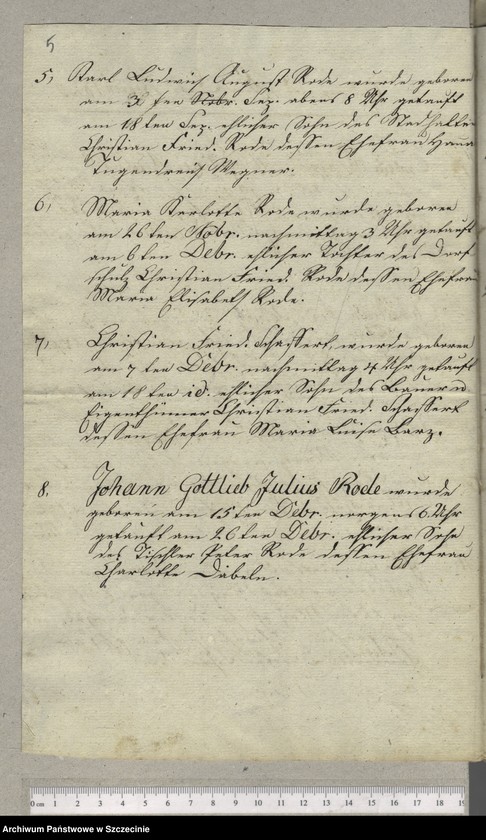 5
5, Karl Ludwich August Rode wurde geboren
am 3 ten Nobr. Sep. abens 8 Uhr getauft
am 18 ten Sep. ehlicher Sohn des Stadhalter
Christian Fried. Rode dessen Ehefrau Hana
Tugendreich Wegner.
6, Maria Kerlotte Rode wurde geboren
am 26 ten Nobr. nachmittag 3 Uhr getauft
am 6 ten Debr. ehlicher Tochter des Dorf
schulz Christian Fried. Rode dessen Ehefrau
Maria Elisabeth Rode.
7, Christian Fried. Schassert, wurde geboren
am 7 ten Debr. nachmittag 4 Uhr getauft
am 18 ten id. ehlicher Sohn des Bauer u.
Eigenthümer Christian Fried. Schassert
dessen Ehefrau Maria Luise Barz.
8. Johann Gottlieb Julius Rode wurde
geboren am 15 ten Debr. morgens 6 Uhr
getauft am 26 ten Debr. ehlicher Sohn
des Tischler Peter Rode dessen Ehefrau
Charlotte Däbeln.
0 cm 1 2 3 4 5 6 7 8 9 10 11 12 13 14 15 16 17 18 19
Archiwum Państwowe w Szczecinie